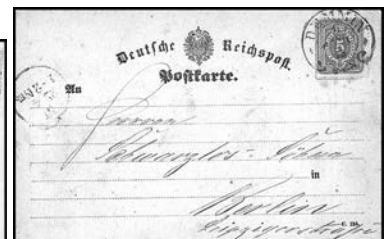 Deutsche Reichspost.
Postkarte.
DEMMIN
5
An
Herren
Schwarzlose Söhne
in
Berlin
Leipzigerstraße